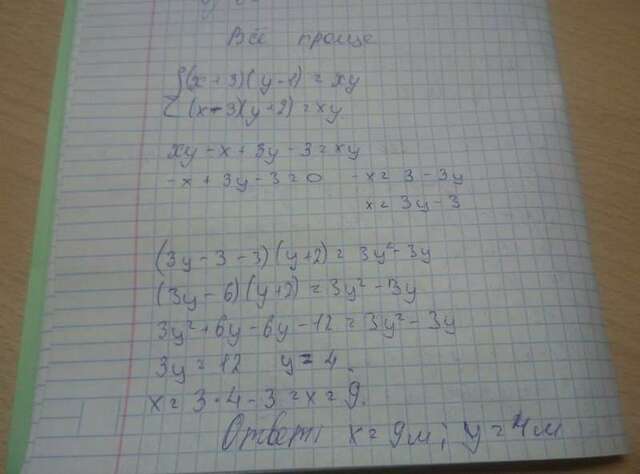 Всё проще
{(x+3)(y-1)=xy
(x-3)(y+2)=xy
xy-x+3y-3=xy
-x+3y-3=0 -x=3-3y
x=3y-3
(3y-3-3)(y+2)=3y²-3y
(3y-6)(y+2)=3y²-3y
3y²+6y-6y-12=3y²-3y
3y=12 y=4.
x=3·4-3=x=9.
Ответ: x=9м; y=4м